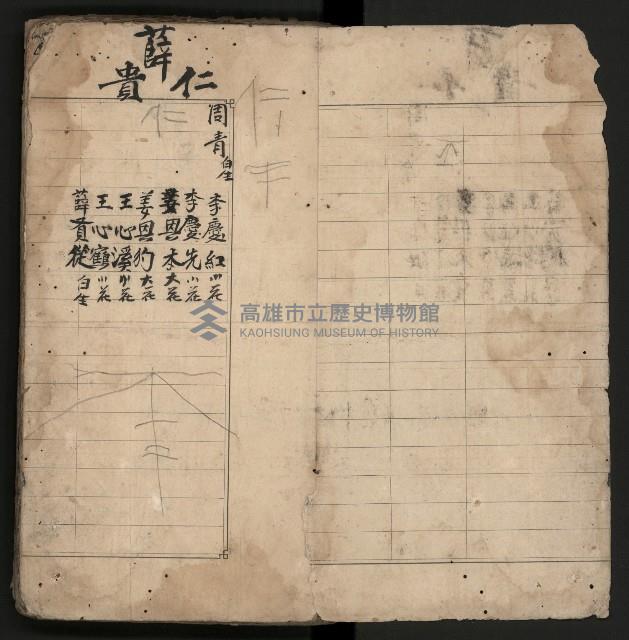 薛仁貴
周青 白生
李慶紅 小花
李慶先 小花
姜興本 大花
姜興豹 大花
王心溪 小花
王心鶴 小花
薛賢從 白生
仁
仁
高雄市立歷史博物館
KAOHSIUNG MUSEUM OF HISTORY